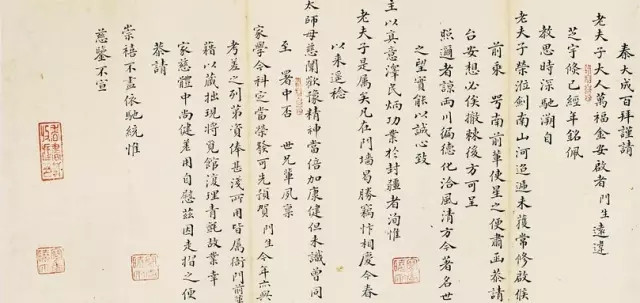 秦大成百拜謹請
老夫子大人萬福金安啟者門生遠違
芝宇條已經年銘佩
教思時深馳溯自
老夫子榮涖劍南山河迢遞未獲常修啟候
前東 粤南前華使星之便肅函恭請
台安想必俟撤棘後方可呈
照適者諒兩川徧德化洽風清方今著名世
之望實能以誠心致
主以真意澤民炳功業於封疆者洵惟
老夫子是屬矣凡在門墻曷勝竊忭相慶今春
以來遙稔
太師母慈闈歡豫精神當倍加康健但未識曾同
至 署中否 世兄輩夙稟
家學今科定當榮發可先預賀門生今年六與
考差之列第資俸甚淺所用皆屬衙門前輩
藉以藏拙現將覓館復理青氈故業幸
家慈體中尚健差用自慰茲因走招之便
恭請
崇禧不盡依馳統惟
慈鑒不宣